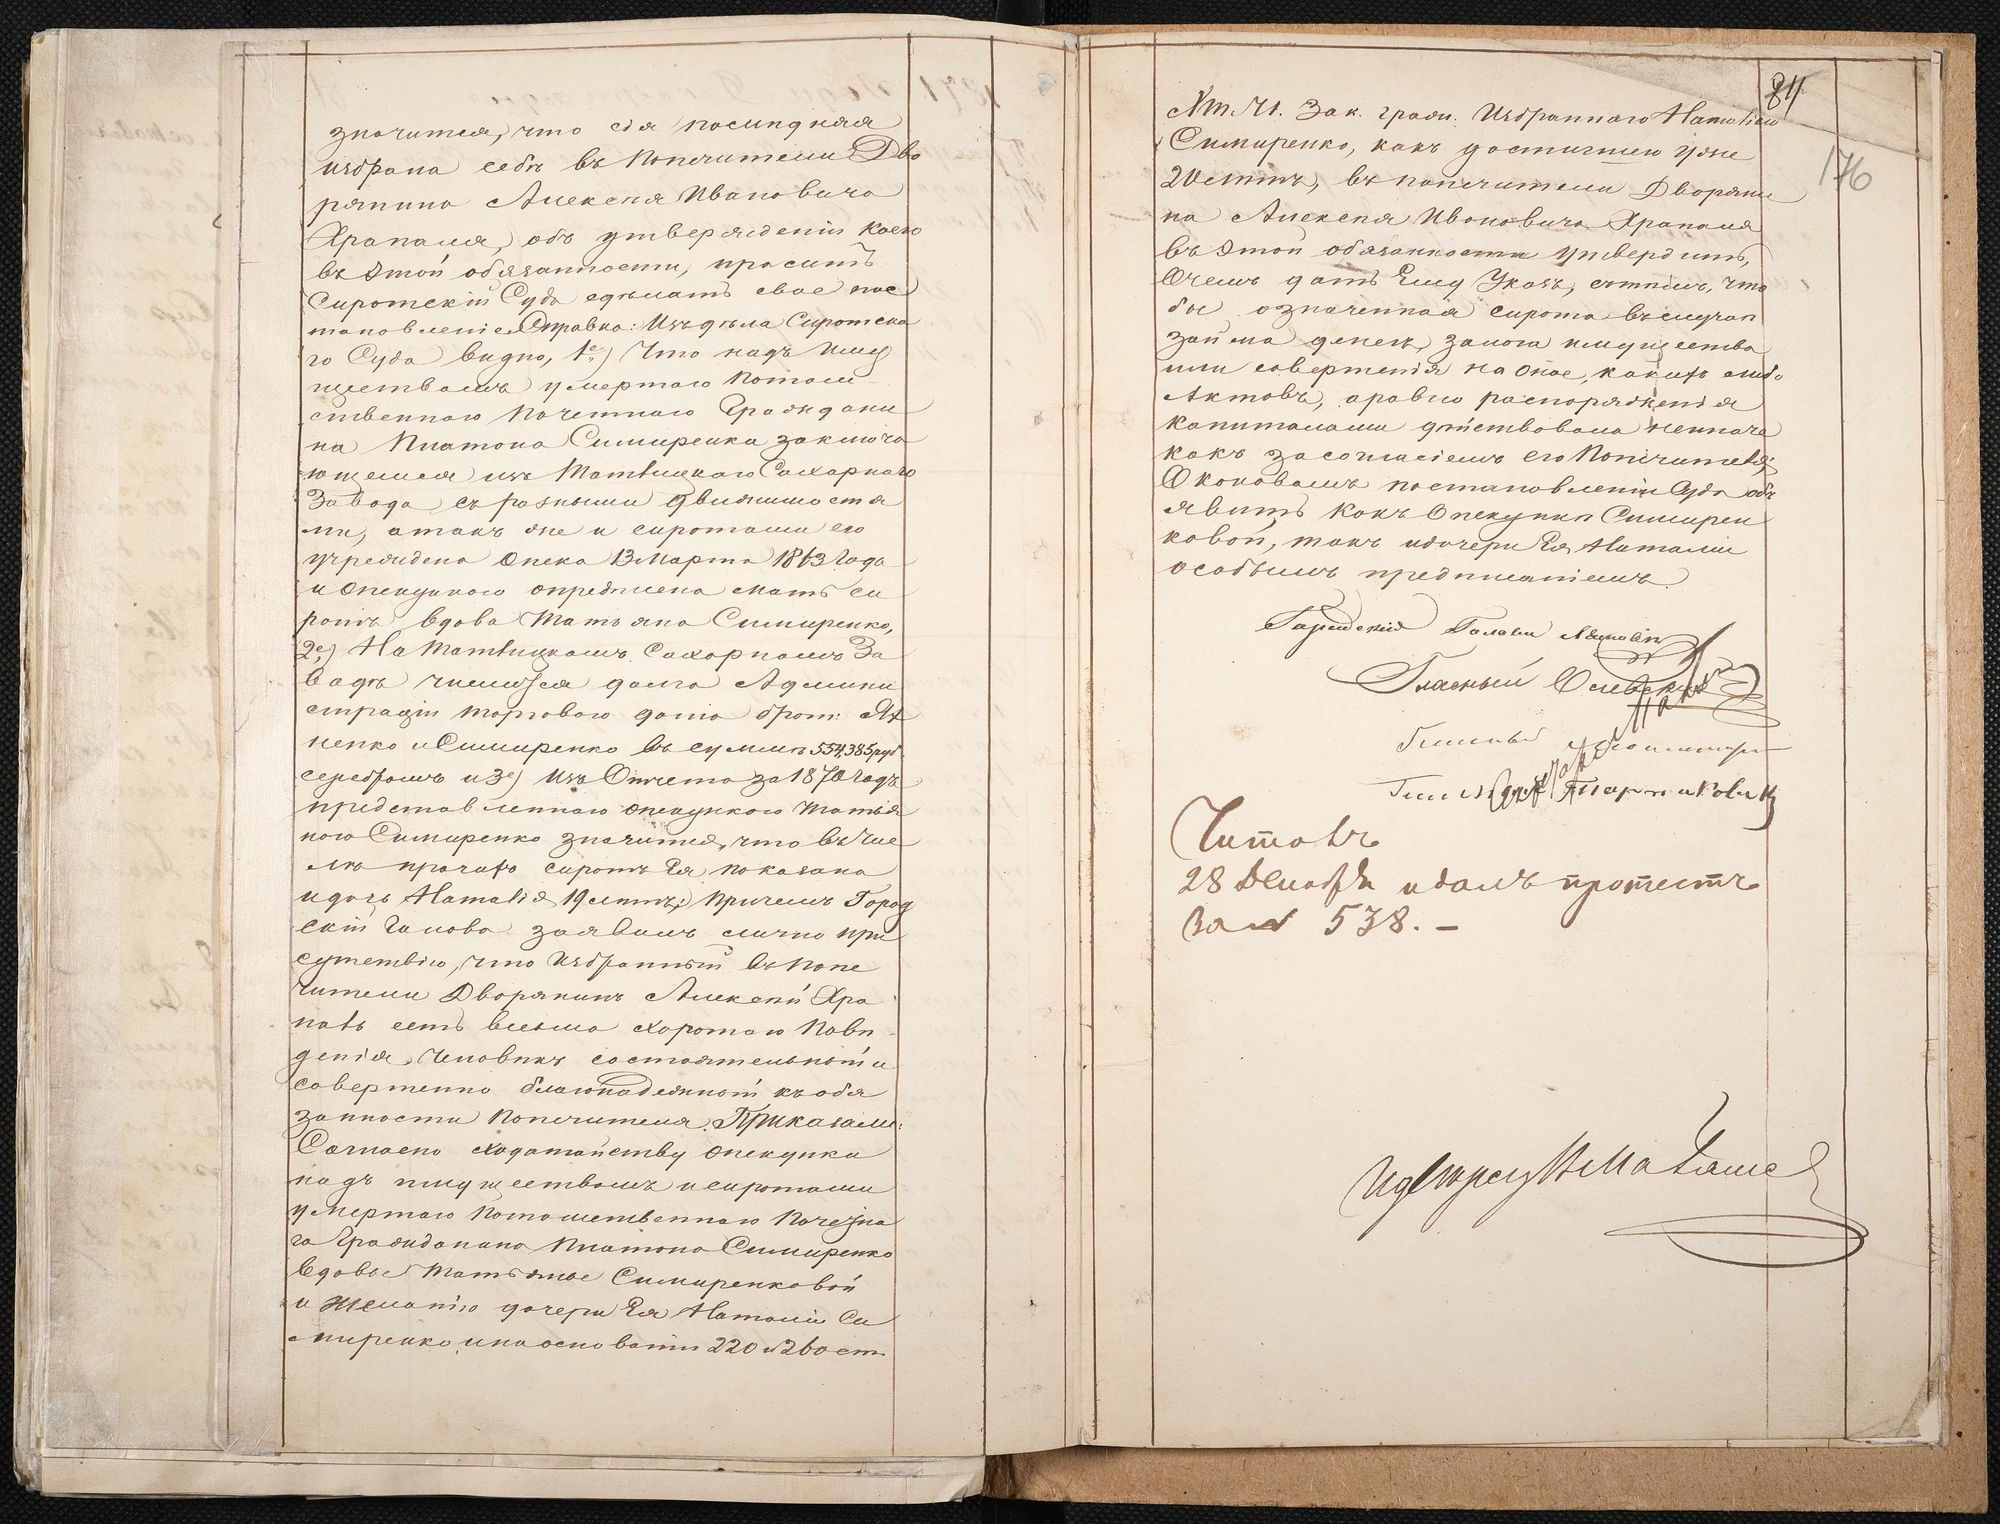 значится, что сія последняя
избрана себѣ въ Попечители Дво
рянина Алексея Ивановича
Храпаля, объ утвержденіи коего
въ этой обязанности, проситъ
Сиротскій Судъ сдѣлать свое пос
тановленіе. Справка: Изъ дѣла Сиротска
го Суда видно, 1е,) Что надъ Иму
ществомъ умершаго Потом
ственнаго Почетнаго Граждани
на Платона Симиренка заключа
ющемся изъ Млѣевскаго Сахарнаго
Завода съ разными движимостя
ми, а такъ же и сиротами его
учреждена Опека 13 Марта 1863 Года
и Опекункою опредѣлена мать си
ротъ вдова Татьяна Симиренко,
2е,) На Сахарномъ За
водѣ числится долга Админи
страціи торговаго дома брат: Ях
ненко и Симиренко въ суммѣ 554,385 руб
серебромъ и 3е) Изъ Отчета за 1870 годъ
представленнаго опекункою Татья
ною Симиренко значится, что въ чис
лѣ прочихъ сиротъ Ея показана
и дочь Наталія 19 лѣтъ; Причемъ Город
ской Голова заявилъ лично При
сутствію, что Избранный въ Попе
чители Дворянинъ Алексѣй Хра
паль есть весьма хорошаго Пове
денія, Человѣкъ состоятельный и
совершенно благонадежный къ обя
занности Попечителя. Приказали:
Согласно ходатайству опекунки
надъ имуществомъ и сиротами
умершаго Потомственнаго Почетна
го Гражданина Платона Симиренко
вдовы Татьяны Симиренковой
и желанію дочери Ея Наталіи Си
миренко и на основаніи 220 и 260 ст.
84
176
Х т. Ч1. Зак. граж. Избраннаго Наталіею
Симиренко, какъ достигшею уже
20 лѣтъ, въ попечители Дворяни
на Алексея Ивановича Храпаля
въ этой обязанности утвердить,
О чемъ дать Ему Указъ, съ тѣмъ, что
бы означенная сирота въ случаѣ
займа денегъ, залога имущества
или совершенія на оное, какихъ либо
Актовъ, а равно распоряженія
капиталами дѣйствовала неиначе
какъ за согласіемъ его Попечителя;
О каковомъ постановленіи Суда объ
явить какъ Опекункѣ Симирен
ковой, такъ и дочери Ея Наталіи
особымъ предписаніемъ.
Городской Голова
Гласный
Гласный
Гласный
Читалъ
28 Декабря и далъ протестъ
за № 538. –